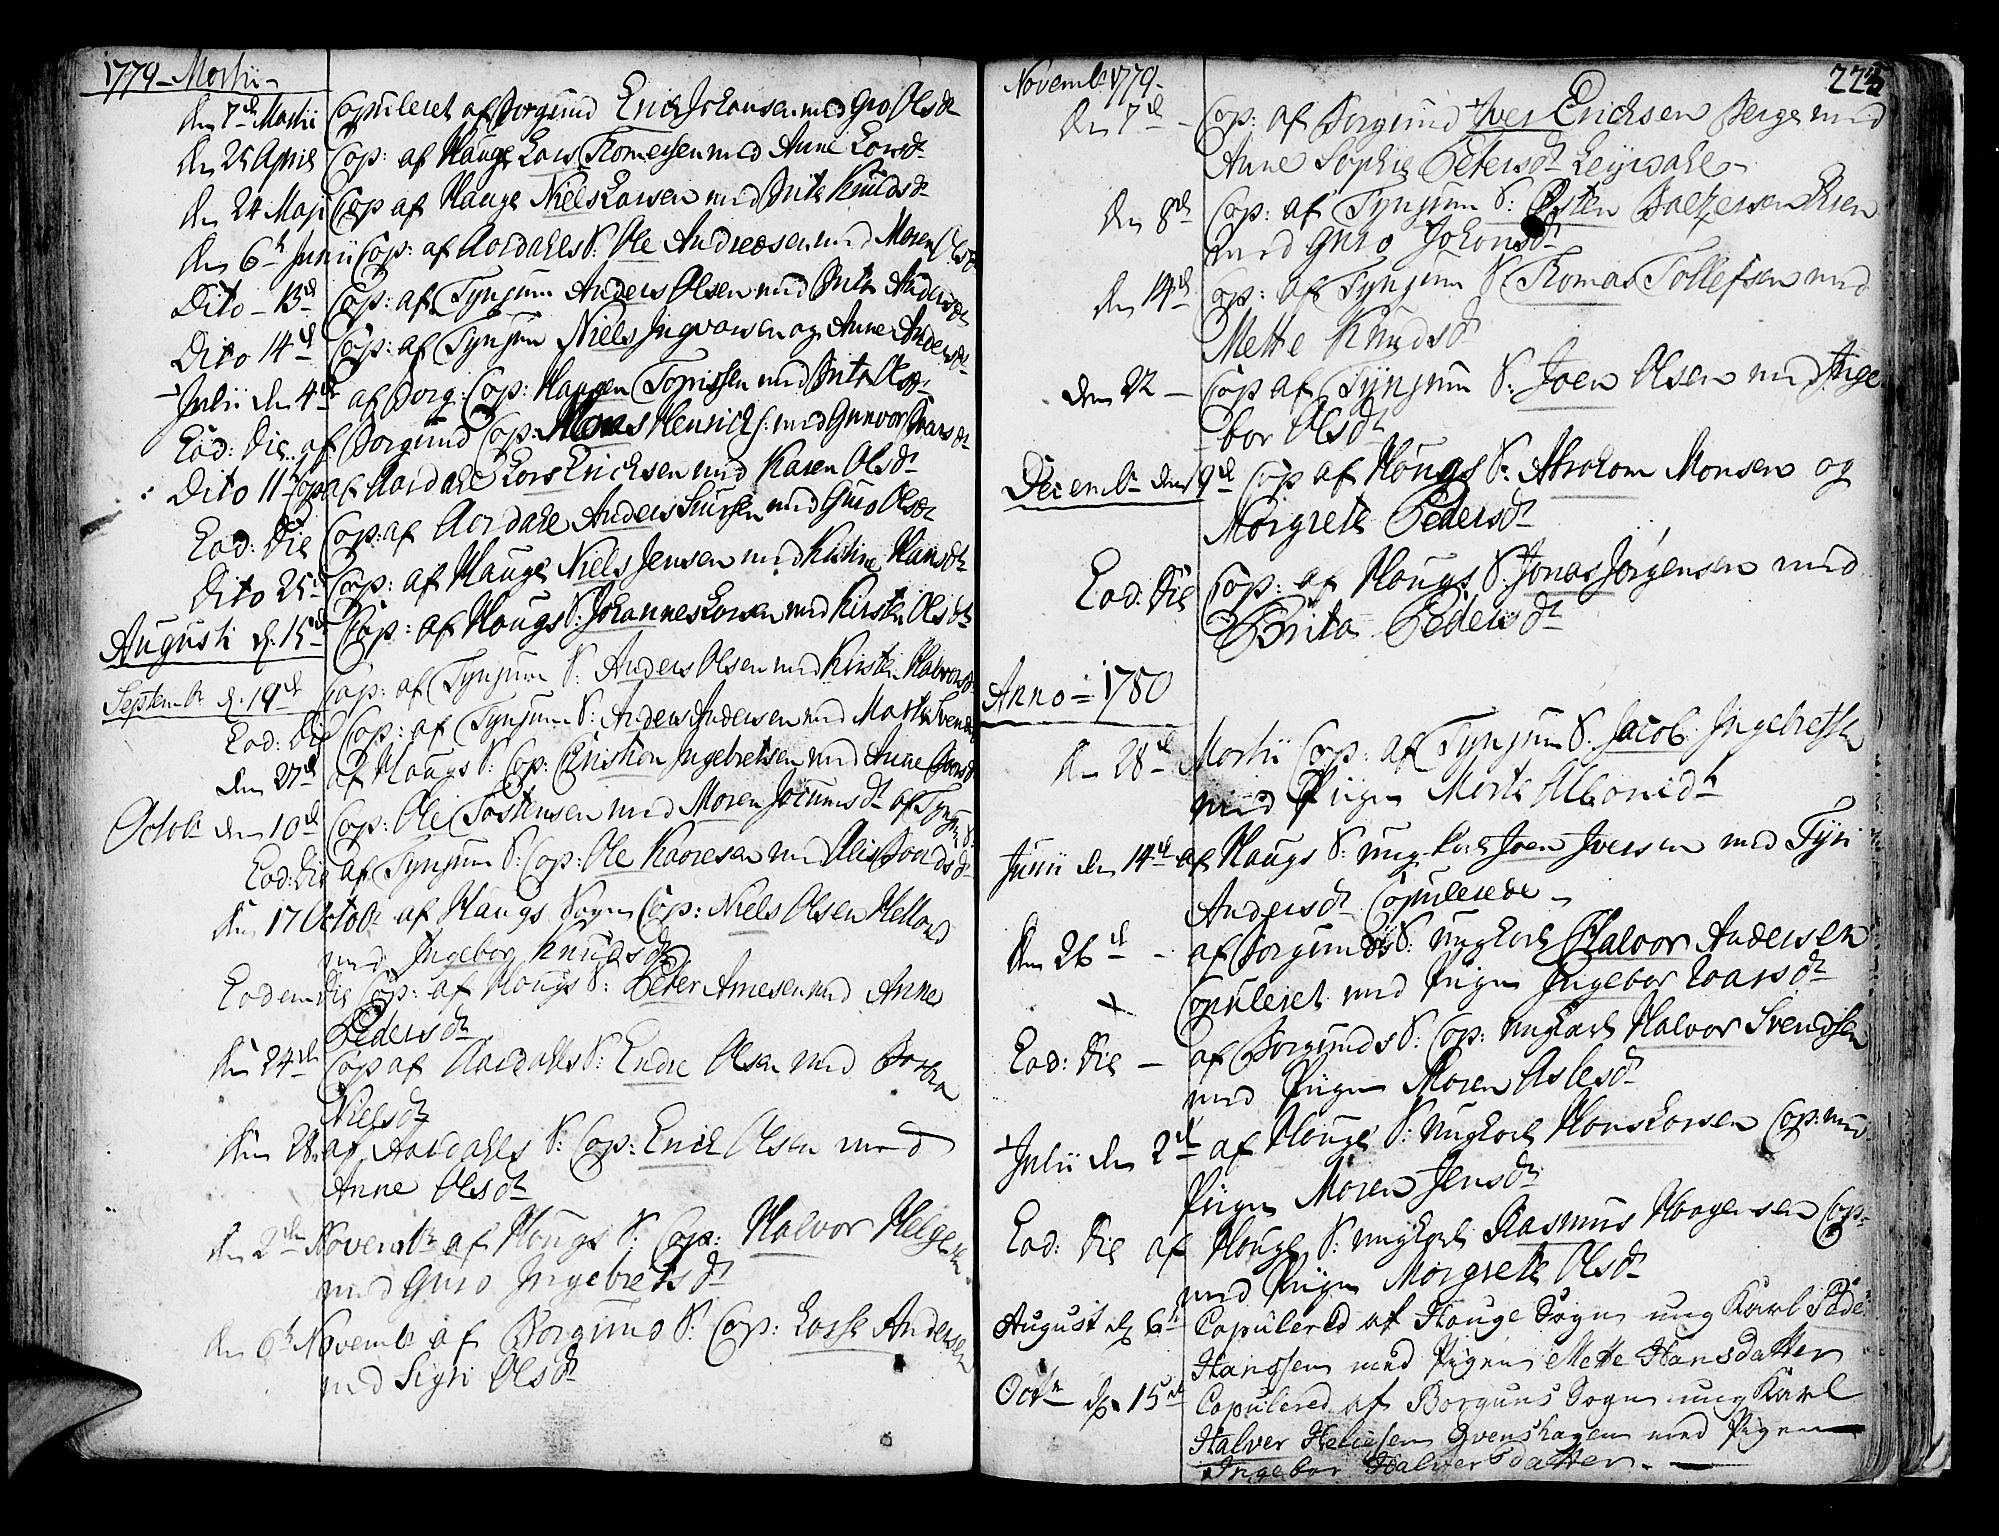 1779 - Martii -
den 7de Martii Copuleret af Borgund Erich Johansen med Gro Olsdr
den 25 April Cop: af Hauge Lars Thomesen med Anne Larsdr
den 24 Maji Cop af Hauge Niels Larsen med Brite Knudsdr
den 6te Junii Cop: af Aardahls S: Ole Andreasen med Maren Olsdr
Dito - 13de Cop: af Tynjum Anders Olsen med Brite Andersdr
Dito 14de Cop: af Tynjum Niels Ingvarsen og Anne Andersdr
Julii den 4de af Borg: Cop: Haagen med Brite Olsdr
Eod: Die af Borgund Cop: Mons Henrichs: med Gunvor Ivarsdr
Dito 11te Cop af Aardahl Lars Erichsen med Karen Olsdr
Eod: Die Cop: af Aardahl Anders Siursen med Guro Olsdr
Dito 25de Cop: af Hauge Niels Jensen med Kistine Hansdr
Augusti d. 15de Cop: af Haugs S: Johannes Larsen med Kirsten Olsdr
Septembr d. 19de Cop: af Tynjum S: Anders Olsen med Kirsten Halvorsdr
Eod: Die Cop: af Tynjum S: Anders Andersen med Martha Svendsdr
den 27de af Haugs S: Cop: Christian Ingebretsen med Anne Iversdr
Octobr den 10de Cop: Ole Tostensen med Maren Jocumsdr af Tynjum S:
Eod: Die af Tynjum S: Cop: Ole Kaaresen med Baardsdr
den 17 Octobr af Haugs Sogn Cop: Niels Olsen Helland
med Ingeborg Knudsdr
Eodem Die Cop: af Haugs S: Peder Arnesen med Anne
Pedersdr
den 24de Cop af Aardahls S: Endre Olsen med Barbra
Nielsdr
den 28. af Aardahls S: Cop: Erich Olsen med
Anne Olsdr
den 2den Novembr af Haugs S: Cop: Halvor Helgesen
med Guro Ingebretsdr
den 6te Novembr af Borgund S: Cop: Lasse Andersen
med Sigri Olsdr
Novembr 1779. 225
den 7de - Cop: af Borgund Iver Erichsen Berge med
Anne Sophie Petersdr Leyrdahl -
den 8de Cop: af Tynjum S: Østen Baltzersen Øren
med Guro Johansdr
den 14de Cop: af Tynjum S Thomas Tollefsen med
Mette Knudsdr
den 22 - Cop af Tynjum S: Joen Olsen med Inge
bor Olsdr
Decembr den 9de Cop af Haugs S: Abraham Monsen og
Margrete Pedersdr
Eod: Die Cop: af Haugs S: Jonas Jørgensen med
Brita Pedersdr
Anno = 1780
den 28de Martii Cop: af Tynjum S: Jacob Ingebretsen
med Pigen Marte
Junii den 14de af Haugs S: ung Karl Joen Iversen med Tyri
Andersdr Copulerede -
den 26de - af Borgunds S: ungkarl Halvor Andersen
Copuleret med Pigen Ingebor Loarsdr
Eod: Die - af Borgunds S: Cop: ungkarl Halvor Svendsen
med Pigen Maren Aslesdr
Julii den 2de af Hauge S: Ungkarl Hans Larsen Cop: med
Pigen Maren Jensdr
Eod: Die af Hauge S: ungkarl Rasmus Haagensen Cop:
med Pigen Margrete Olsdr
August d. 6te Copulered af Hauge Sogn ung Karl Pæder
Hanssen med Pigen Mette Hansdatter
Octbr d. 15de Copulered af Borguns Sogn ung Karl
Halver Helliesen Qvenshagen med Pigen
Ingebor Halversdatter. -